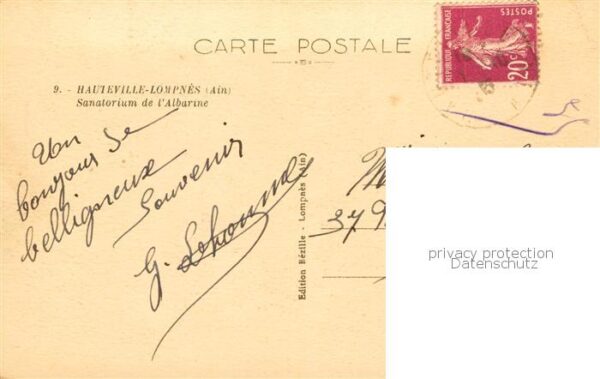 CARTE POSTALE
9. - HAUTEVILLE-LOMPNÈS (Ain)
Sanatorium de l'Albarine
POSTES
REPUBLIQUE FRANÇAISE
20c
Un
bonjour de
belligneux
Souvenir
G.
37
Edition Bézille - Lompnès (Ain)
privacy protection
Datenschutz